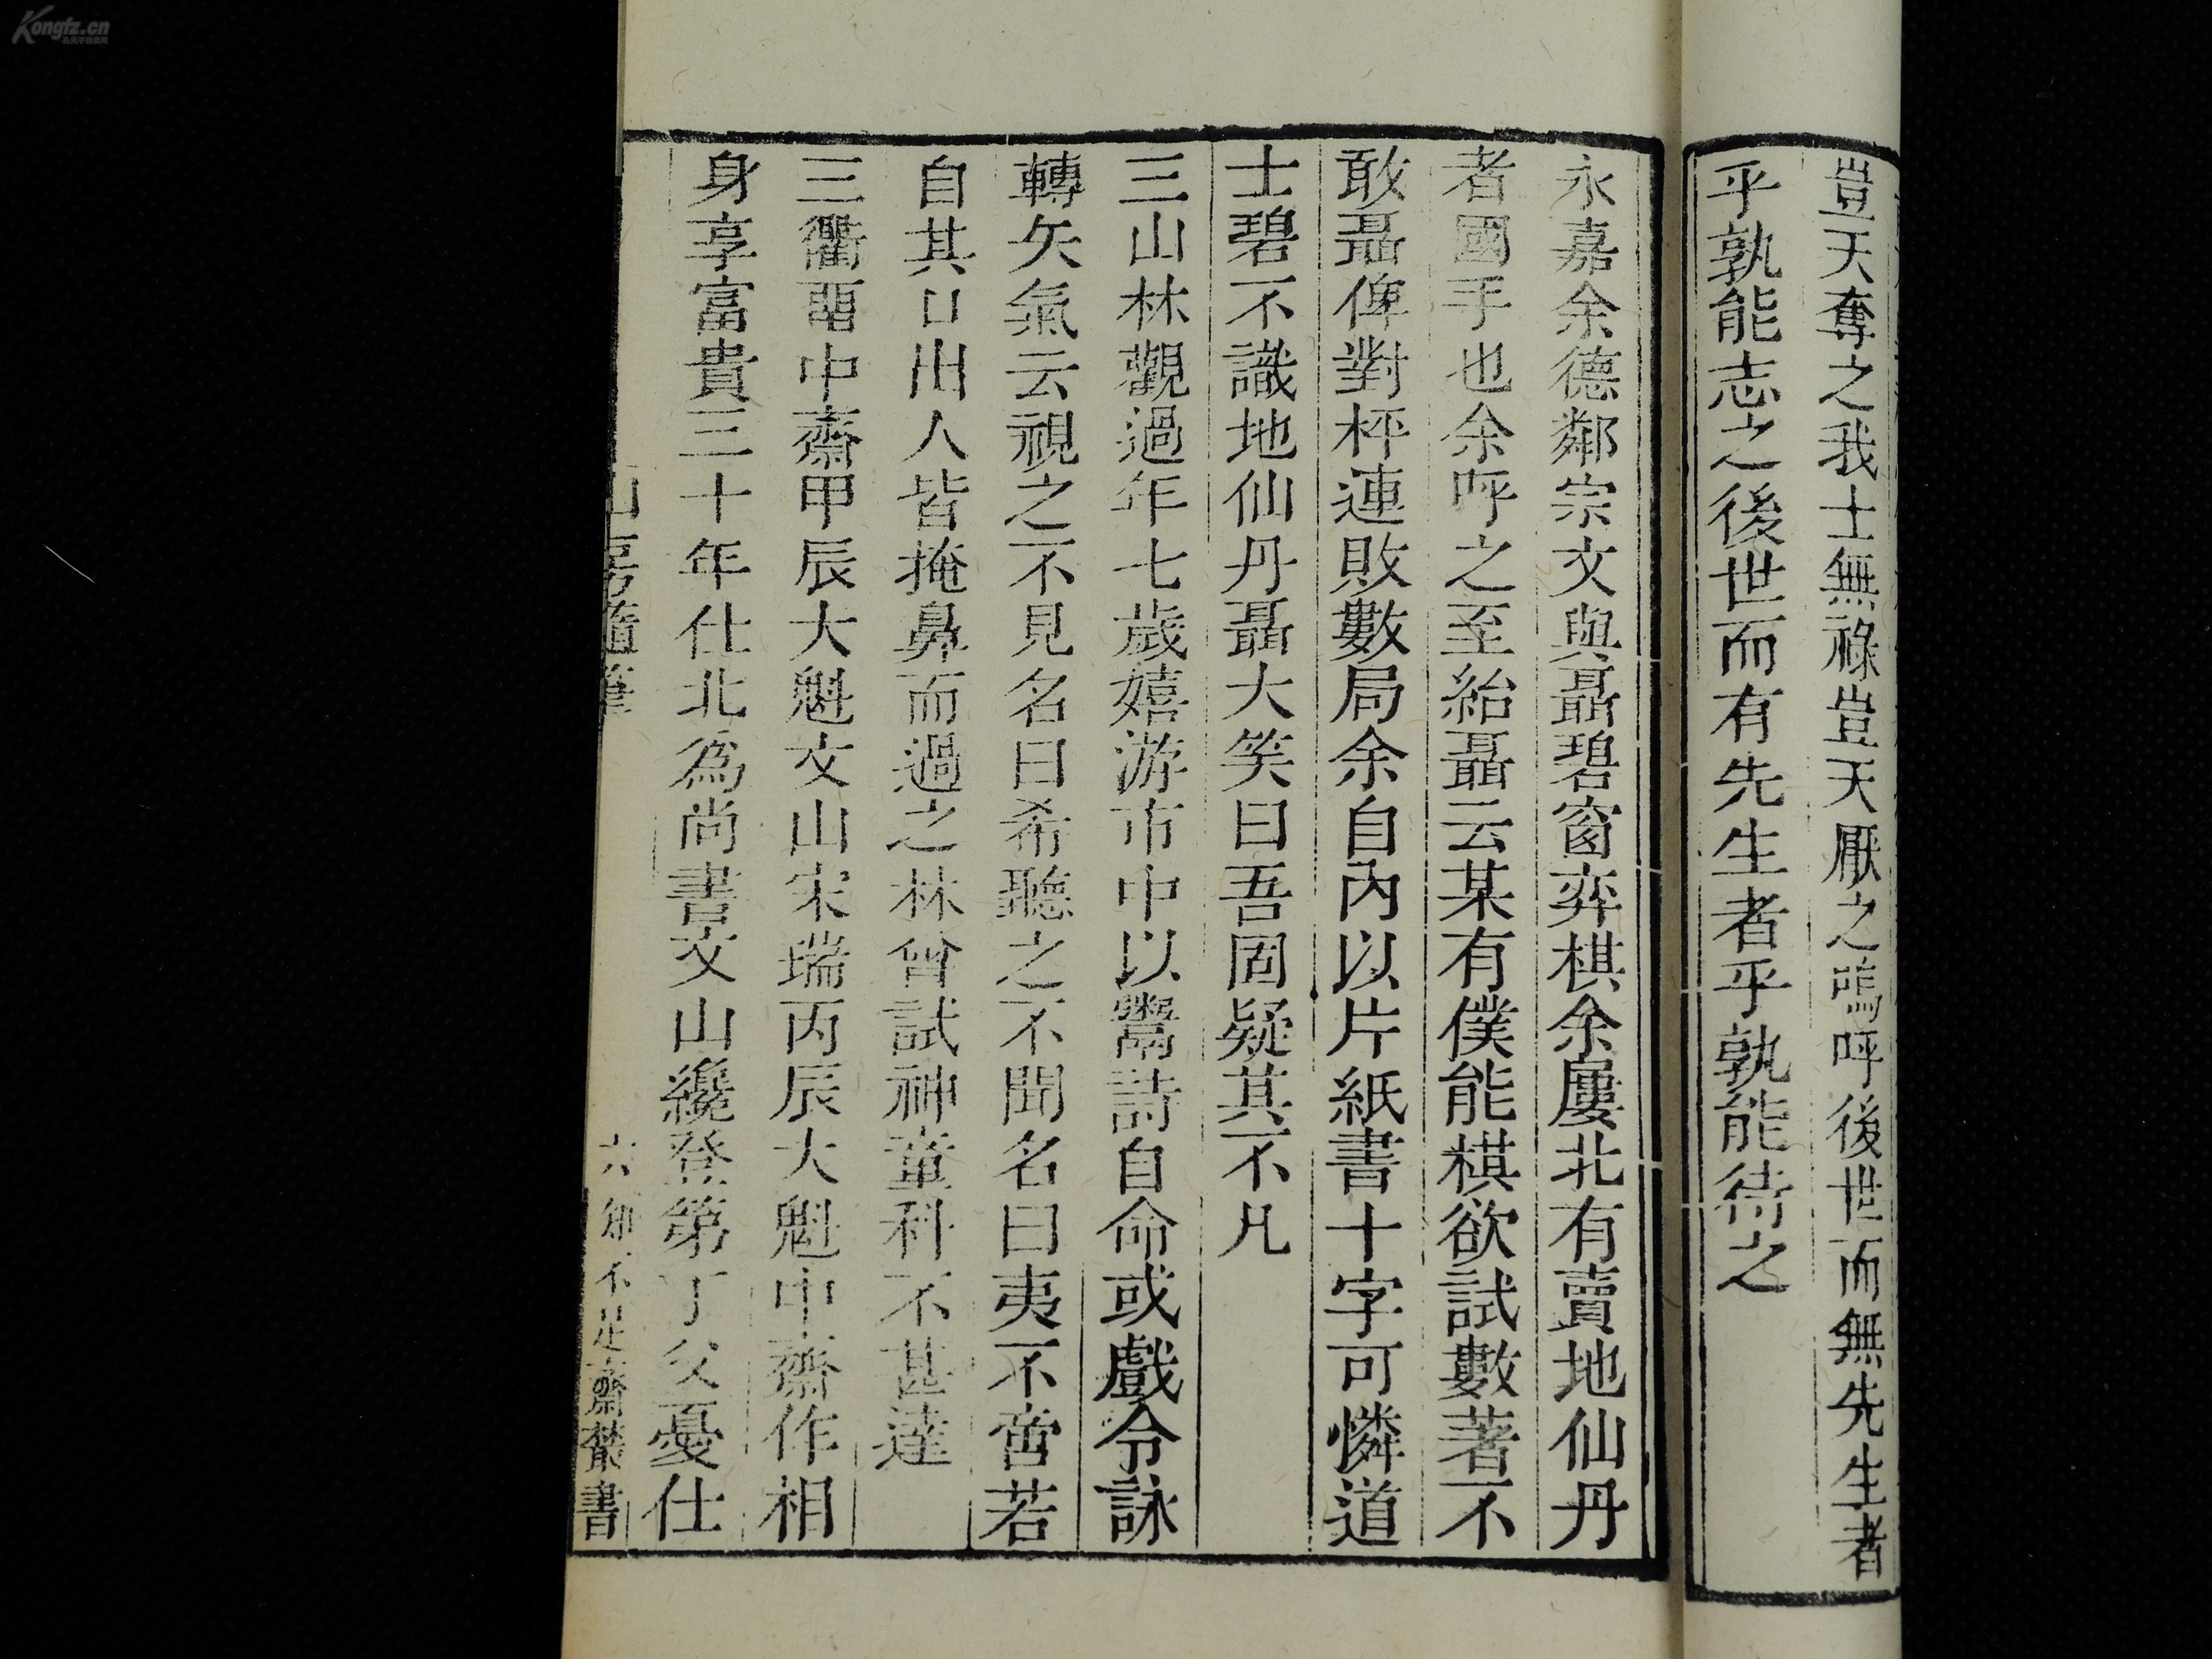 豈天奪之我士無祿豈天厭之嗚呼後世而無先生者
乎孰能志之後世而有先生者乎孰能待之
永嘉余德鄰宗文與聶碧窗弈棋余屢北有賣地仙丹
者國手也余呼之至紿聶云某有僕能棋欲試數著不
敢聶俾對枰連敗數局余自內以片紙書十字可憐道
士碧不識地仙丹聶大笑曰吾固疑其不凡
三山林觀過年七歲嬉游市中以鬻詩自命或戲令詠
轉矢氣云視之不見名曰希聽之不聞名曰夷不啻若
自其口出人皆掩鼻而過之林嘗試神童科不甚達
三衢畱中齋甲辰大魁文山宋瑞丙辰大魁中齋作相
身享富貴三十年仕北為尚書文山纔登第丁父憂仕
山房隨筆
六 知不足齋叢書
Kongfz.cn